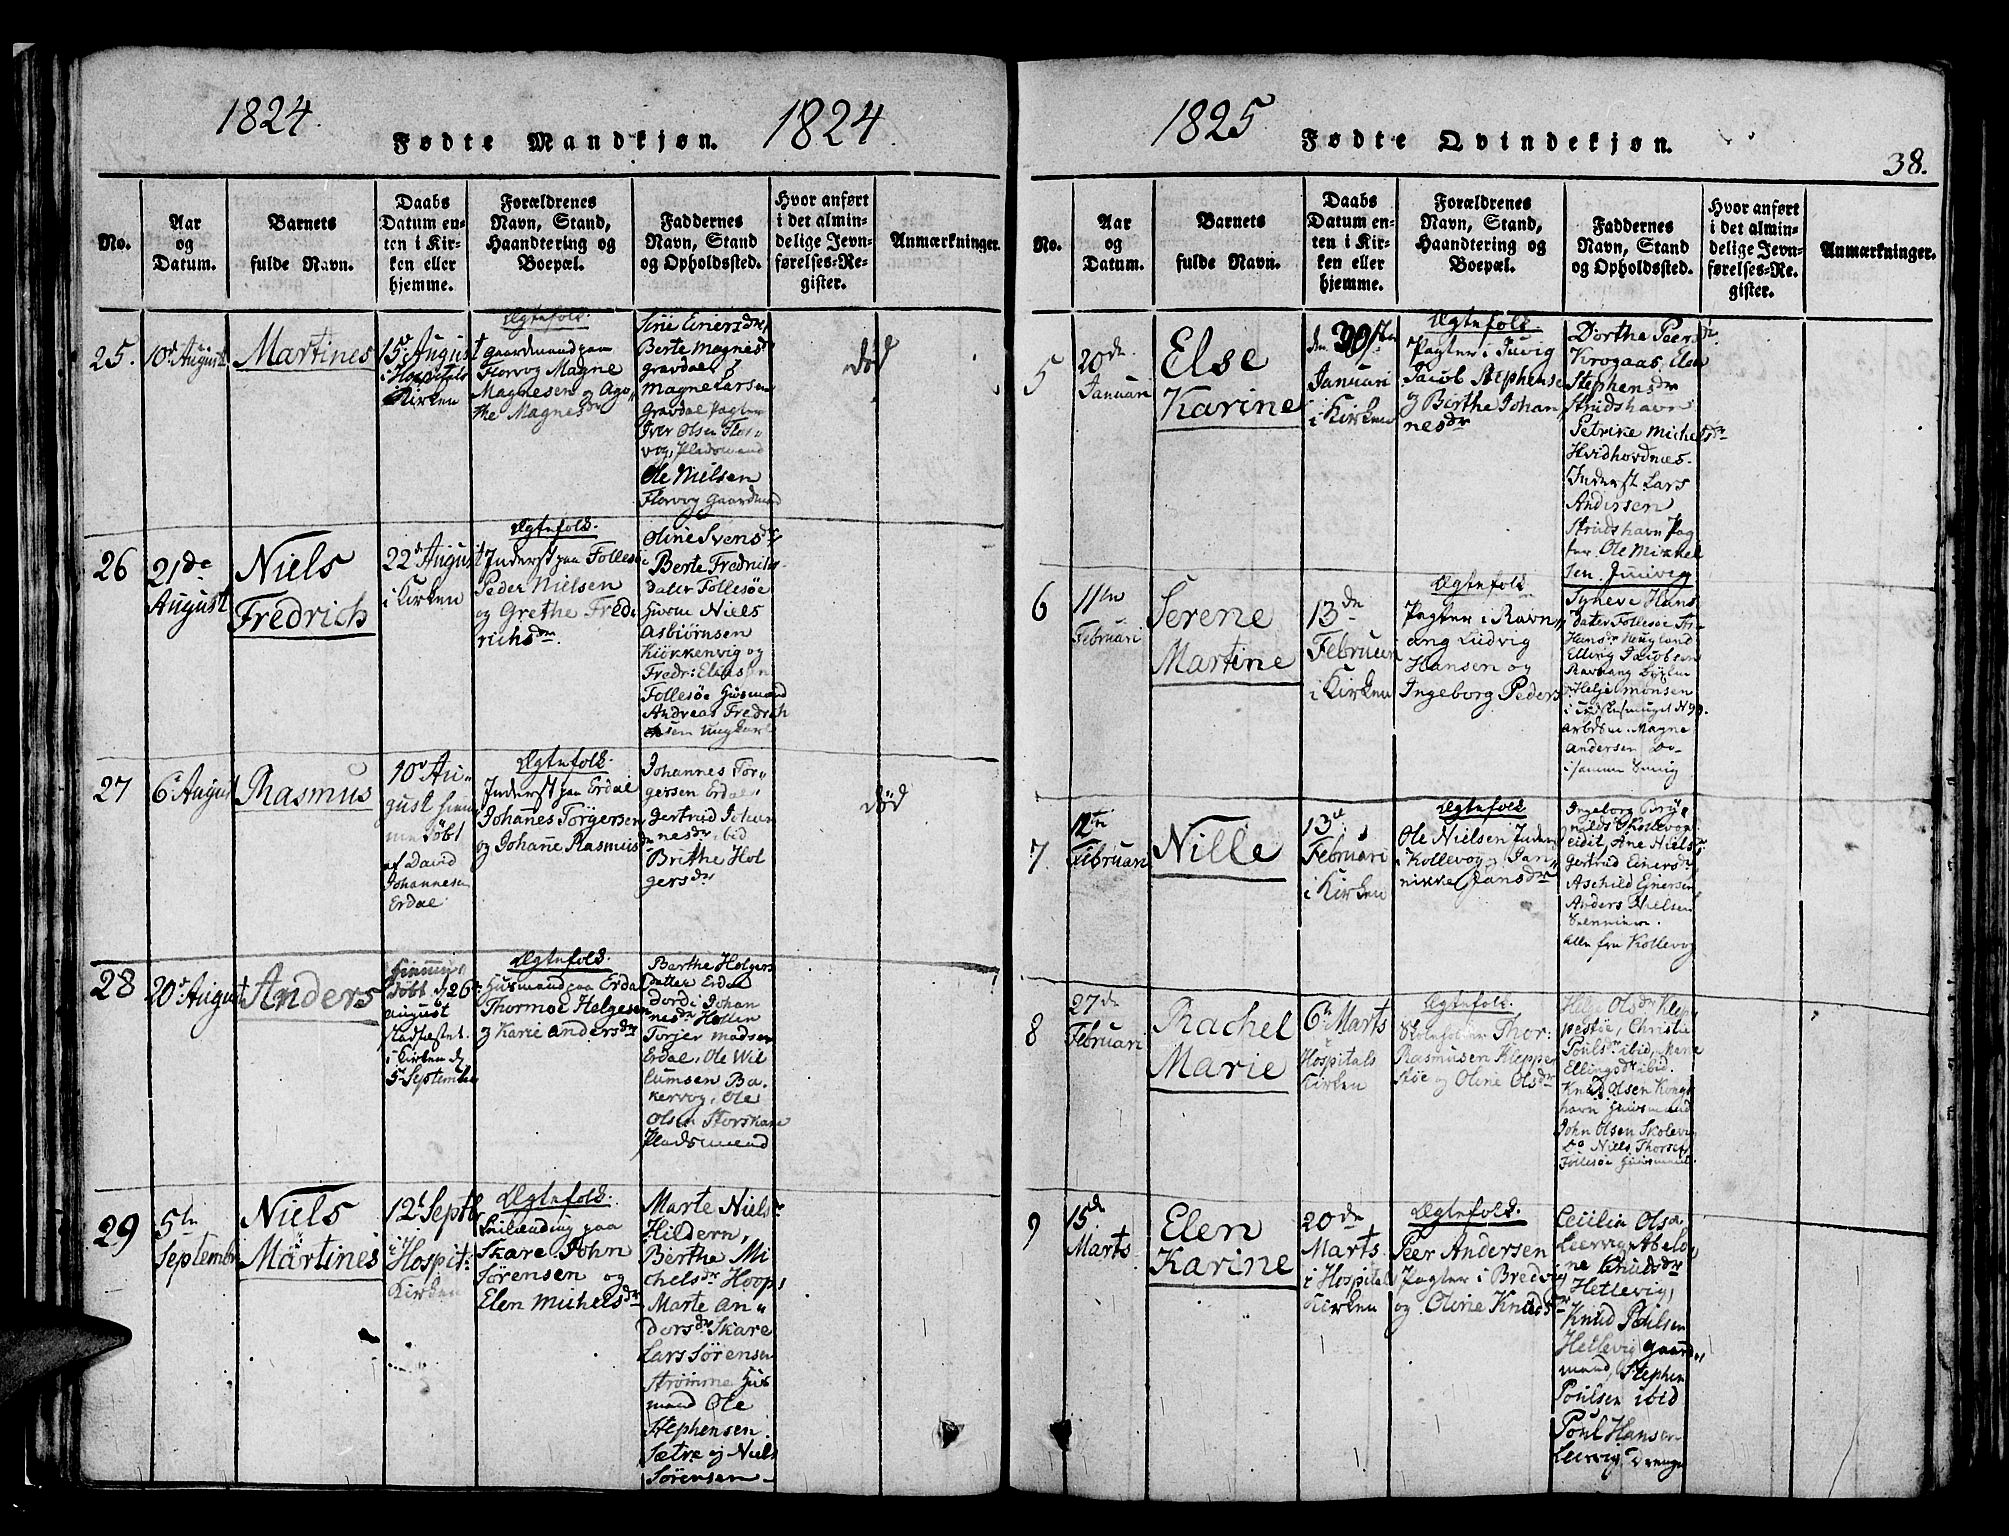 1824.
Fødte Mandkjøn.
1824
No.
Aar
og
Datum.
Barnets
fulde Navn.
Daabs
Datum en-
ten i Kir-
ken eller
hjemme.
Forældrenes
Navn, Stand,
Haandtering og
Boepæl.
Faddernes
Navn, Stand
og Opholdssted.
Hvor anført
i det almin-
delige Jevn-
førelses-Re-
gister.
Anmærkninger.
25.
10d August
Martines
15d August
i Hospitals
Kirken
Ægtefolk.
Gaardmand paa
Florvog Magne
Magnesen og Ago„
the Magnesdr
Siri Einersdr,
Berte Magnesd
Gravdal,
Magne Larsen
Gravdal Pagter
Iver Olsen Flor„
vog, Pladsmand
Ole Nielsen
Florvog Gaardmand
død
26
21de
August
Niels
Fredrich
22d August
i Kirken
Ægtefolk.
Inderst paa Follesøe
Peder Nielsen
og Grethe Fredi
richsdr.
Oline Svensdr
Berte Fredrichs-
dater Follesøe
Niels
Asbiørnsen
Kiøkkenvig og
Fredr: Eliasen
Follesøe Husmand
Andreas Fredrich
sen ungkarl
27
6d August
Rasmus
10d Au„
gust hiem„
me døbt
af David
Johannesen
Erdal
Ægtefolk.
Inderst paa Erdal
Johannes Torgersen
og Johanne Rasmusdr
Johannes Tor„
gersen Erdal,
Gertrud Johan
nesdr, ibid
Brithe Hol
gersdr
død
28
20d August
Anders
hiemme
døbt d 26
August
Stadfæstet
i Kirken d
5 September
Ægtefolk.
Husmand paa Erdal
Thormoe Helgesen
og Karie Andersdr
Berthe Holgers
datter Erdal
Dordi Johan
nesdr
Torjer Madsen
Erdal, Ole Wil
lumsen Ba„
kervog, Ole
Olsen Storskare
Pladsmand
29
5te
September
Niels
Martines
12d Septbr
i Hospit:
Kirken
Ægtefolk.
paa
Skare John
Sørensen og
Elen Michelsdr
Marte Nielsdr
Hildern,
Berthe Mi
chelsdr Hoops
Marte An„
dersdr Skare
Lars Sørensen
Strømme Hus
mand Ole
Stephensen
Sætre og Niels
Sørensen
1825
Fødte Qvindekjøn.
38.
No.
Aar
og
Datum.
Barnets
fulde Navn.
Daabs
Datum en-
ten i Kir-
ken eller
hjemme.
Forældrenes
Navn, Stand,
Haandtering og
Boepæl.
Faddernes
Navn, Stand
og Opholdssted.
Hvor anført
i det almin-
delige Jevn-
førelses-Re-
gister.
Anmærkninger.
5
20de
Januari
Else
Karine
den 30te
Januari
i Kirken
Ægtefolk.
Pagter i Juvig
Jacob Stephensen
og Berthe Johan„
nesdr
Dorthe Peersdr
Krogaas, Elen
Stephensdr
Strudshavn
Petrike Michelsdr
Hvidhordnes.
Inderst Lars
Andersen
Strudshavn Pag
ter Ole Mikkel
sen Juuvig
6
11te
Februari
Serene
Martine
13de
Februari
i Kirken
Ægtefolk
Pagter i Ravn„
ang Ludvig
Hansen og
Ingeborg Peders
Syneve Hans
dater Follesøe
Hansdr Haugland
Elling Jacobsen
Ravnang
Helje Monsen
N 99.
Magne
Andersen Do
7
12te
Februari
Nille
13de
Februari
i Kirken
Ægtefolk
Ole Nielsen Inderst
i Kollevog og Jan„
nikke Jansdr
Ingeborg Bry„
nilds Kollevog
Ane Nielsdr
Gertrud Einersdr
Aschild Ejnersen
Anders Nielsen
alle fra Kollevog
8
27de
Februari
Rachel
Marie
6te Marts
i
Hospitals
Kirken
Ægtefolk.
Thor:
Rasmusen Kleppe
støe og Oline Olsdr
Helje Olsdr Klep„
pestøe, Christie
Poulsdr ibid, Marie
Ellingsdr ibid.
Knud Olsen Kongs
havn Huusmand
John Olsen Skolevig
Do Niels Thorsen
Follesøe Huusmand.
9
15de
Marts
Elen
Karine
20de
Marts
i Hospitals
Kirken
Ægtefolk.
Peer Andersen
Pagter i Bredvig
og Oline Knudsdr
Cecilia Olsdr
Leervig, Abelo„
ne Knudsdr
Hetlevig,
Knud Poulsen
Hetlevig Gaard„
mand, Stephen
Poulsen ibid
Poul Hansen
Leervig Drenge